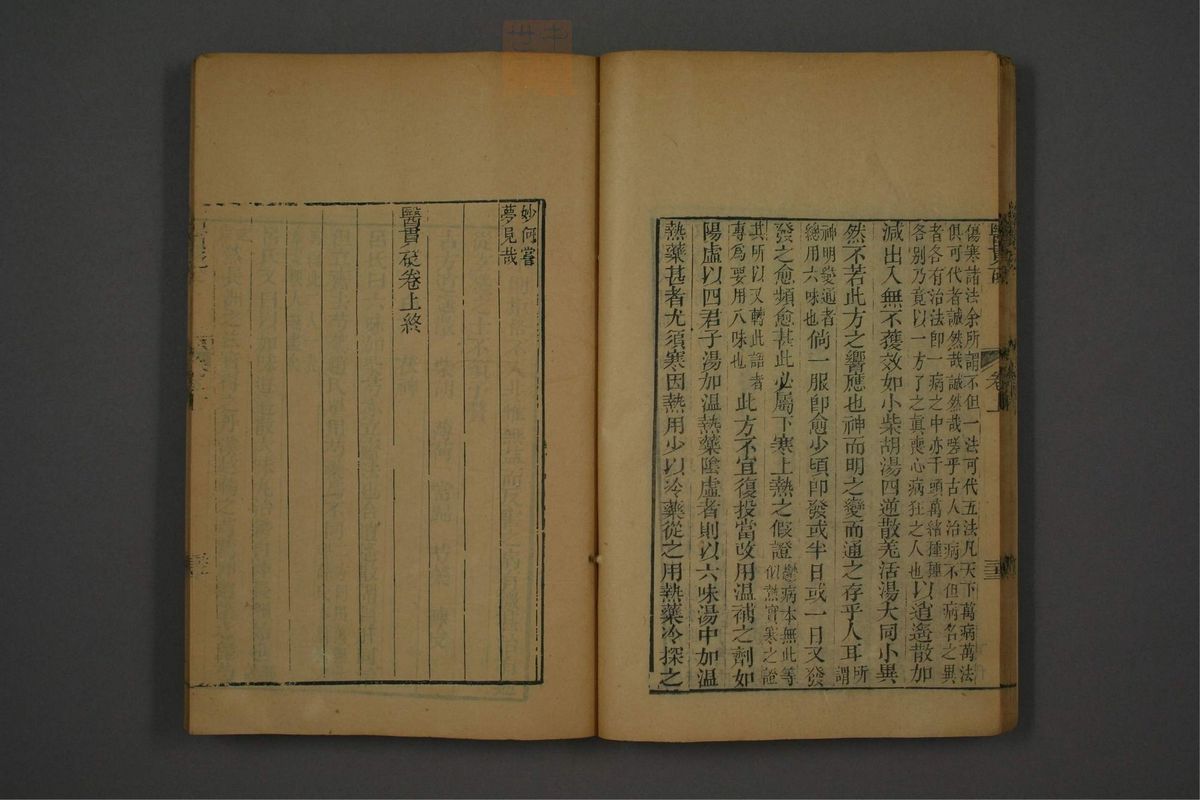 傷寒諸法余所謂不但一法可代五法凡天下萬病萬法
俱可代者誠然哉誠然哉嗟乎古人治病不但病名之異
者各有治法即一病之中亦千頭萬緒種種
各別乃竟以一方了之眞喪心病狂之人也以逍遙散加
減出入無不獲效如小柴胡湯四逆散羗活湯大同小異
然不若此方之響應也神而明之變而通之存乎人耳所謂
神明變通者
總用六味也倘一服卽愈少頃卽發或半日或一日又發
發之愈頻愈甚此必屬下寒上熱之假證鬱病本無此等
似熱實寒之證
其所以又轉此語者
專爲要用八味也此方不宜復投當改用温補之劑如
陽虛以四君子湯加温熱藥陰虛者則以六味湯中加温
熱藥甚者尤須寒因熱用少以冷藥從之用熱藥冷探之
卷上
妙何嘗
夢見哉
醫貫砭卷上終